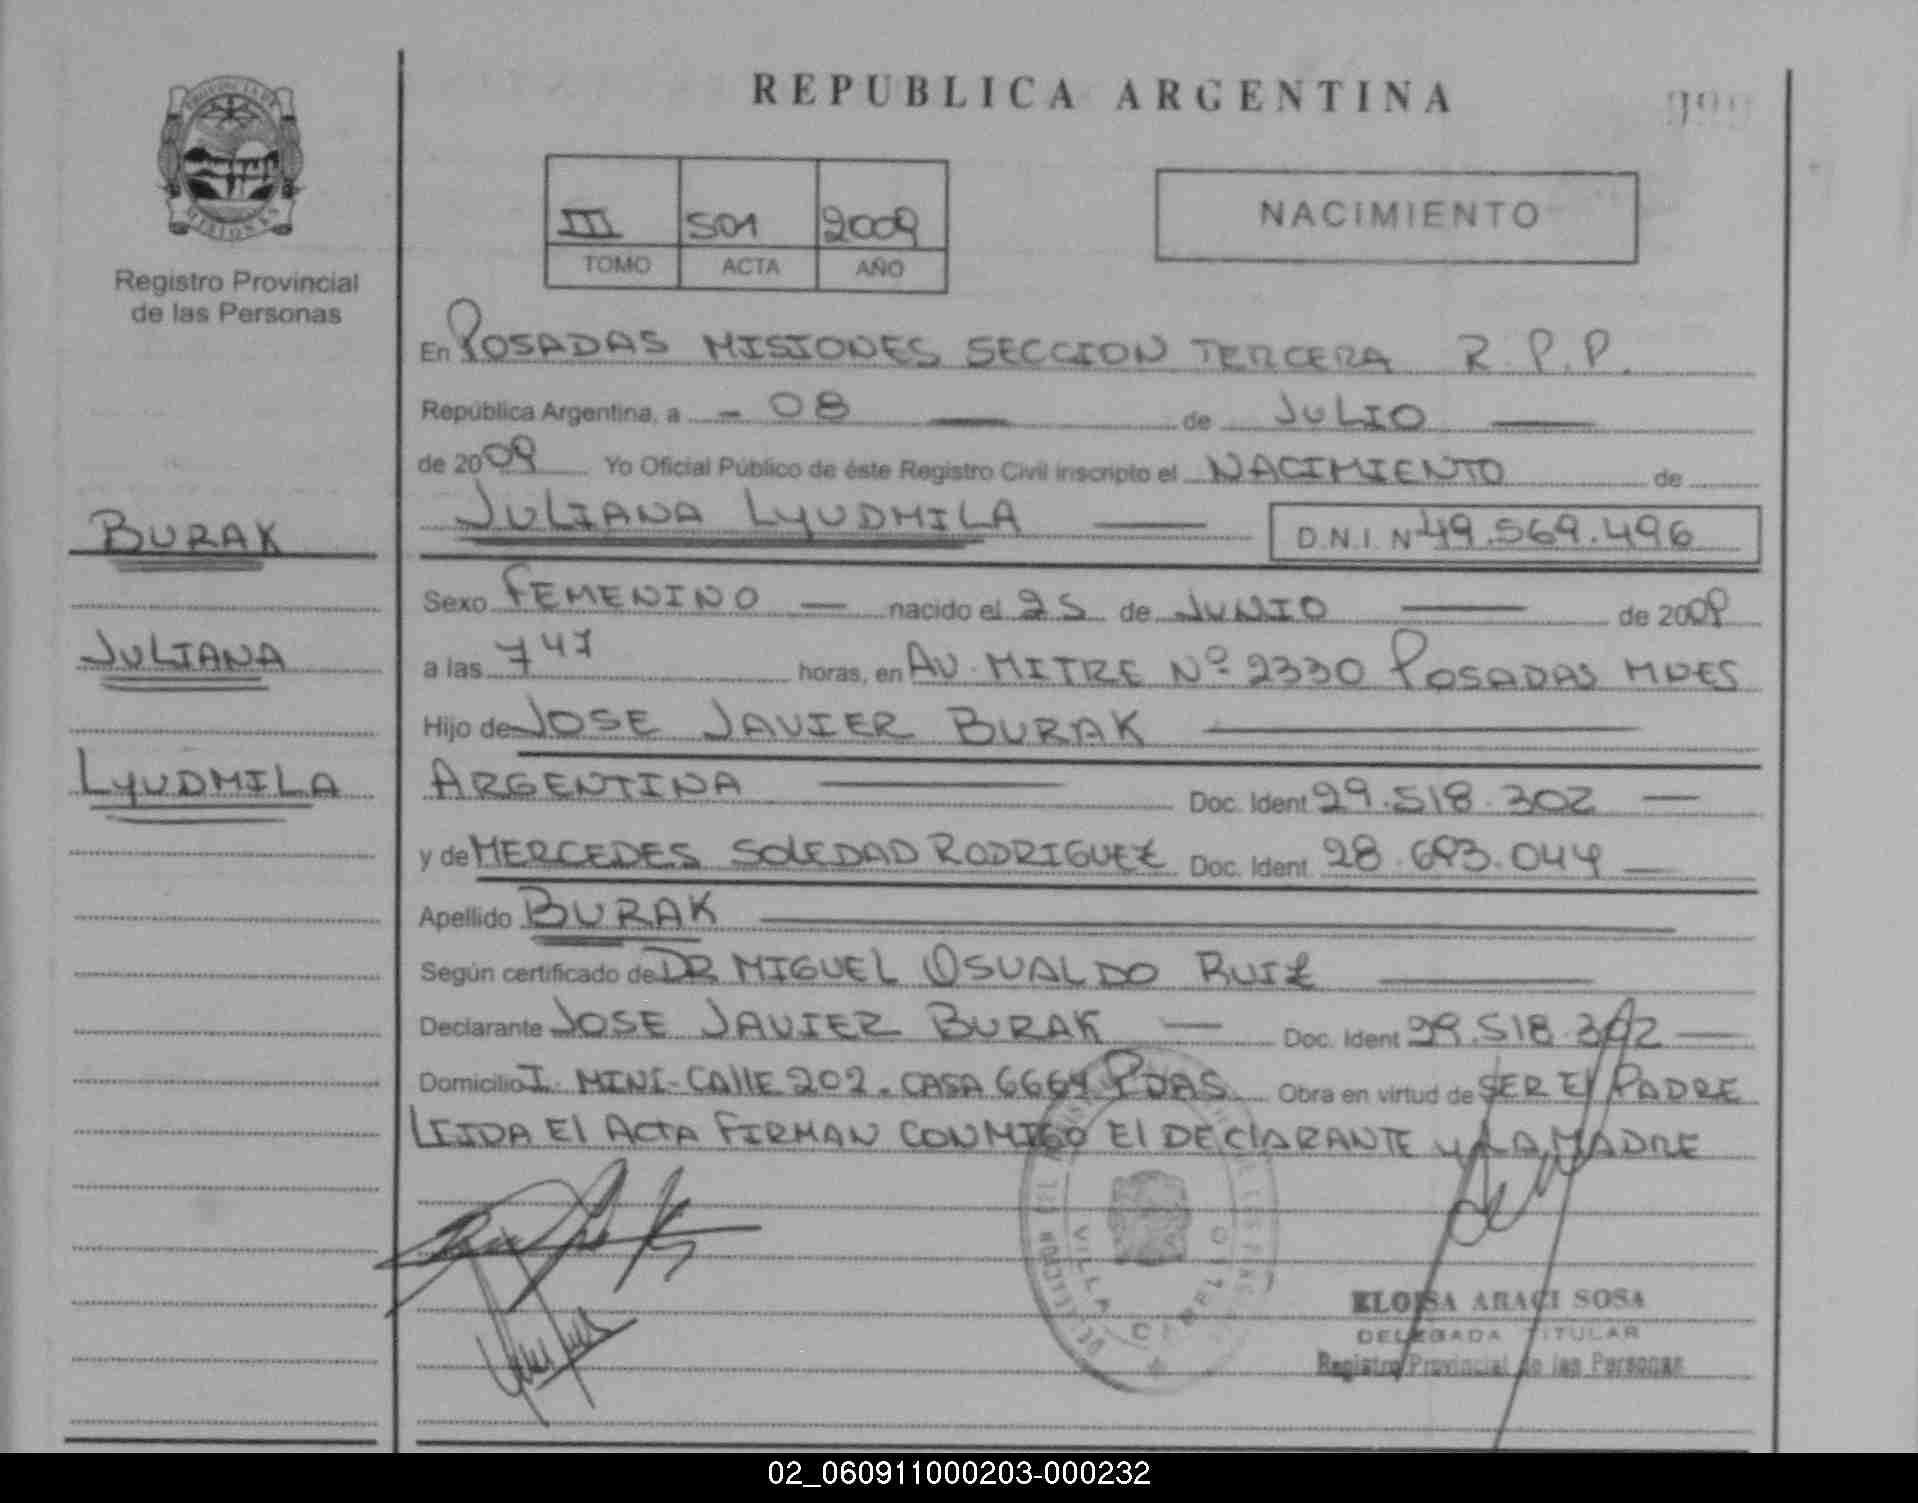 PROVINCIA DE
MISIONES
Registro Provincial
de las Personas
BURAK
JULIANA
LYUDMILA
REPUBLICA ARGENTINA
III 501 2009
TOMO ACTA AÑO
NACIMIENTO
En POSADAS MISIONES SECCION TERCERA R.P.P.
República Argentina, a - 08 — de JULIO —
de 2009 Yo Oficial Público de éste Registro Civil inscripto el NACIMIENTO de
JULIANA LYUDMILA — D.N.I. Nº 49.569.496
Sexo FEMENINO — nacido el 25 de JUNIO — de 2009
a las 7 47 horas, en AV. MITRE Nº 2330 POSADAS MNES
Hijo de JOSE JAVIER BURAK —
ARGENTINA — Doc. Ident. 29.518.302 —
y de MERCEDES SOLEDAD RODRIGUEZ Doc. Ident. 28.693.044 —
Apellido BURAK —
Según certificado de DR MIGUEL OSVALDO RUIZ —
Declarante JOSE JAVIER BURAK — Doc. Ident. 29.518.302 —
Domicilio I. MINI-CAllE 202. CASA 6664 PDAS. Obra en virtud de SER El PADRE
LEIDA El ACTA FIRMAN CONMIGO El DEClARANTE y LA MADRE
VILLA CABELLO
ELOISA ARACI SOSA
DELEGADA TITULAR
Registro Provincial de las Personas
02_060911000203-000232